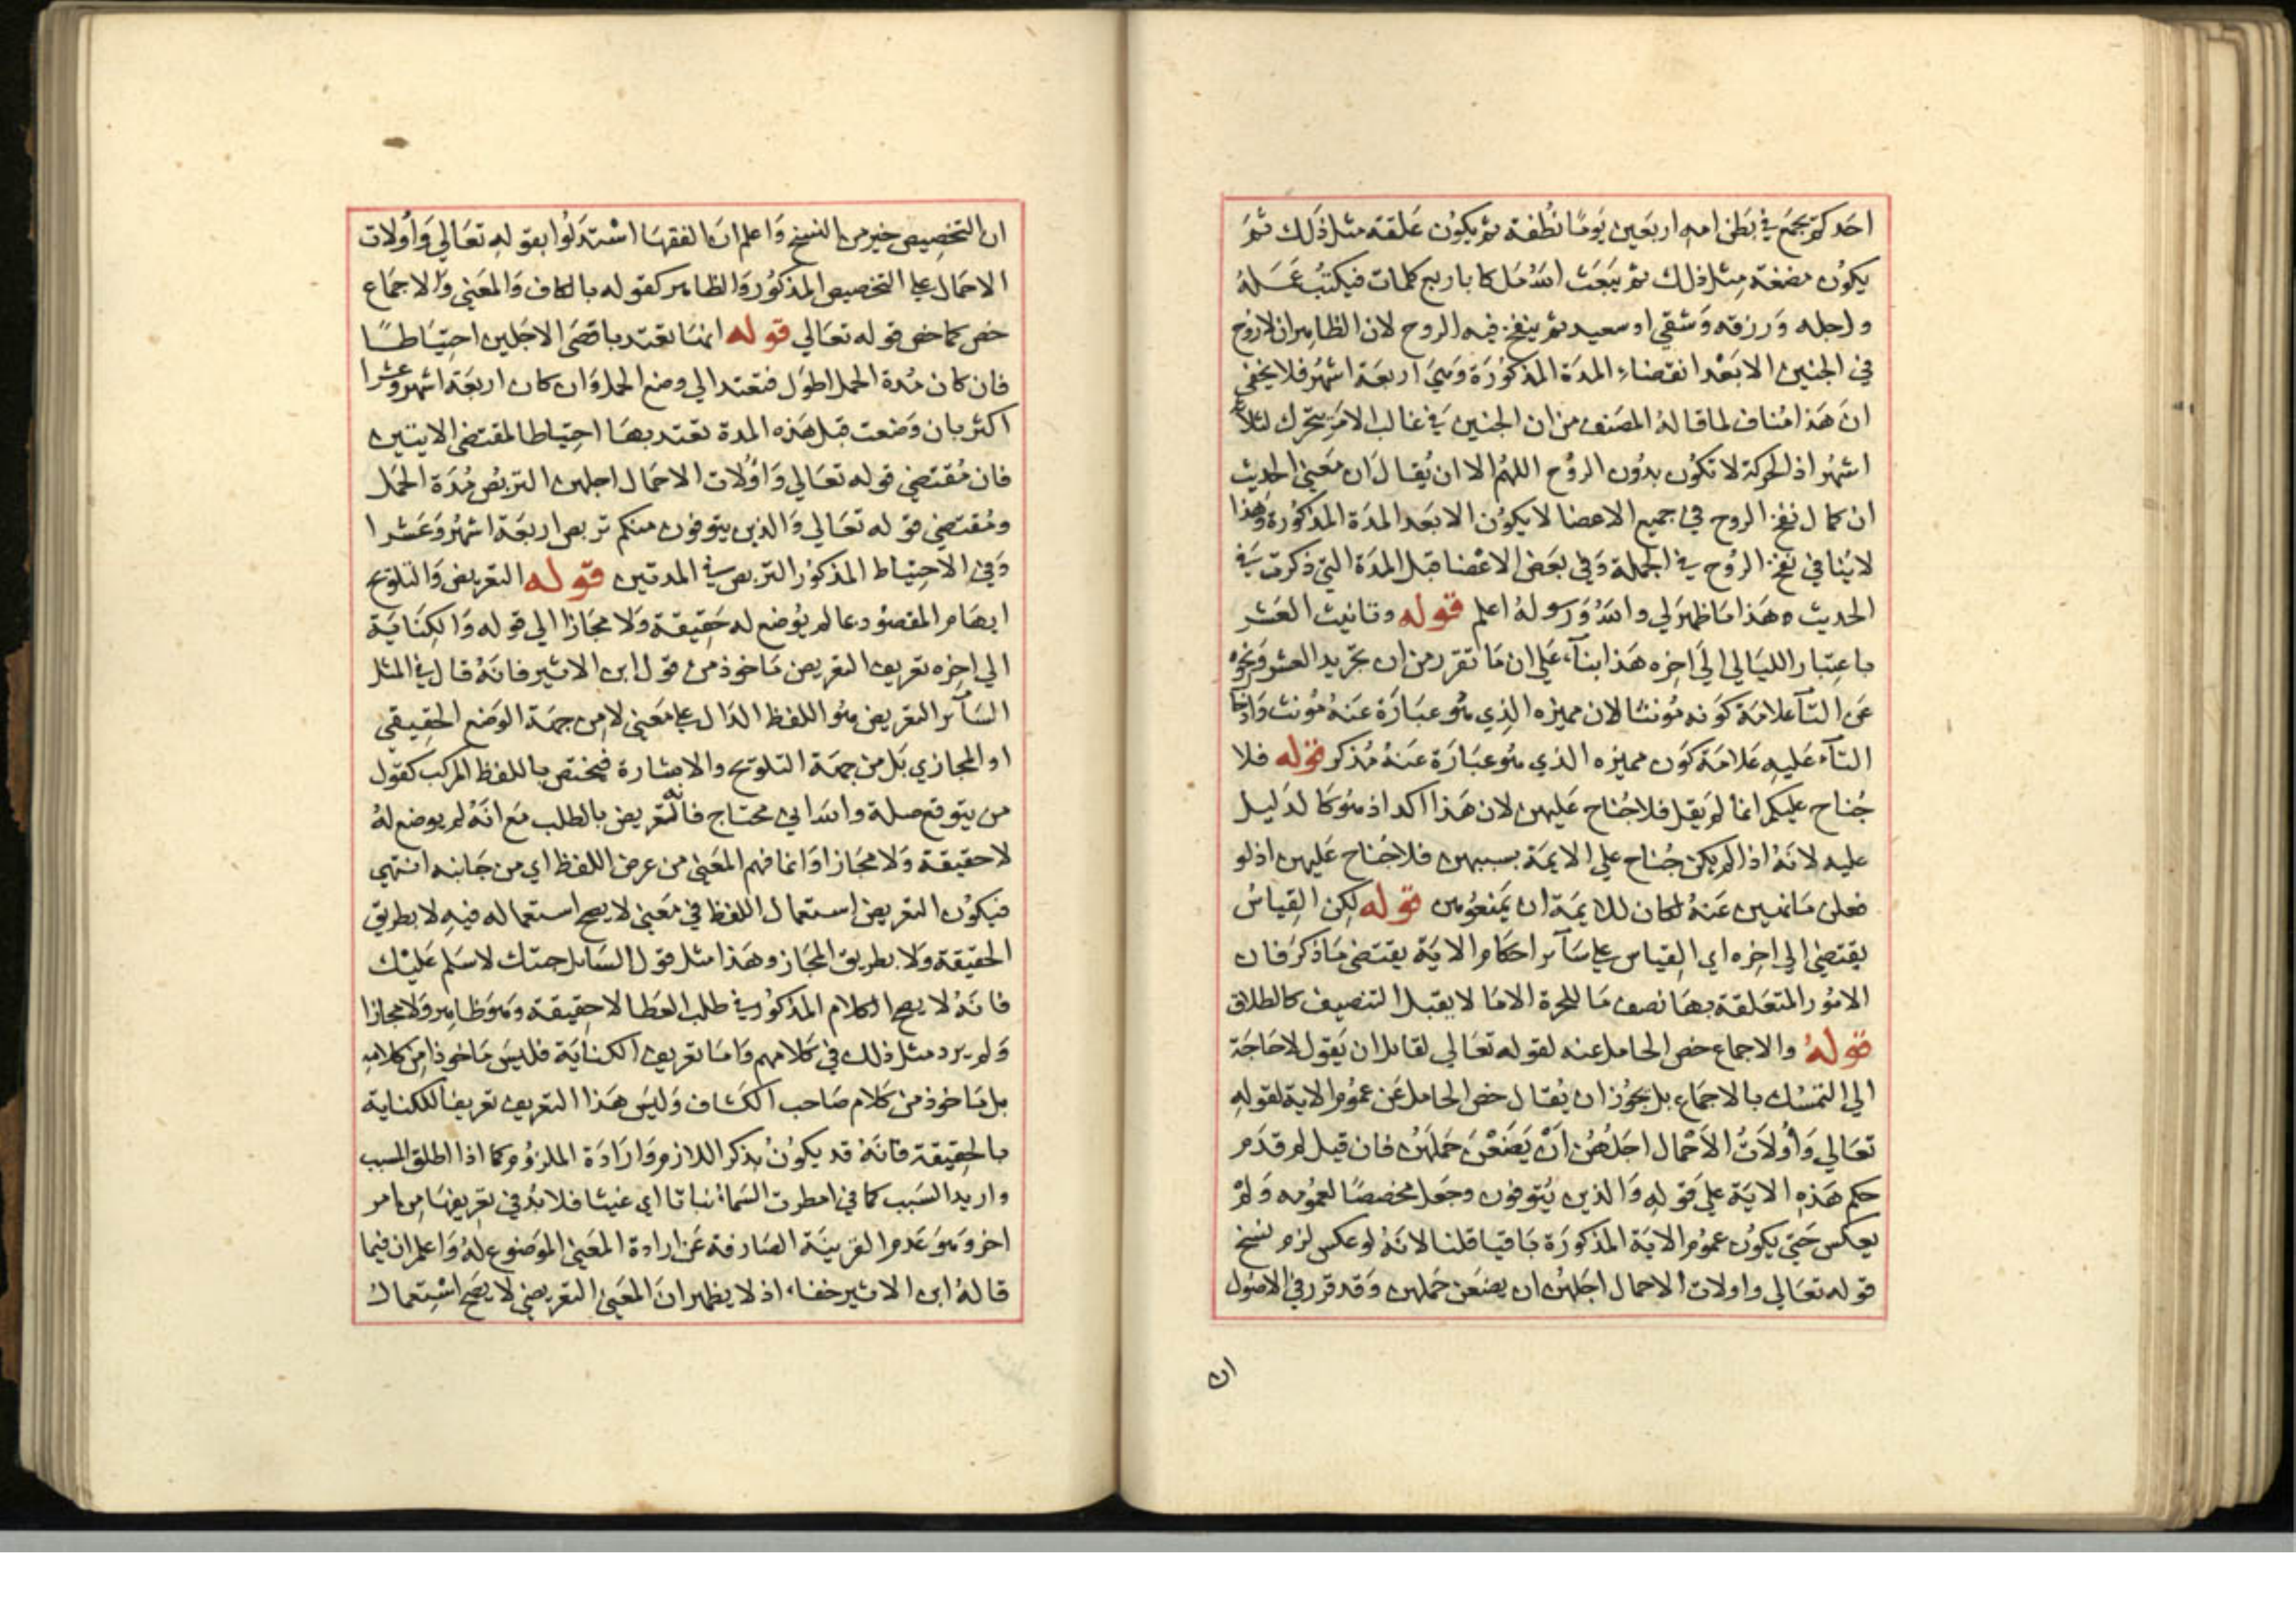 احدكم يجمع في بطن امه اربعين يوما نطفة ثم يكون علقة مثل ذلك ثم
يكون مضغة مثل ذلك ثم يبعث الله ملكا باربع كلمات فيكتب عمله
واجله ورزقه وشقي او سعيد ثم ينفخ فيه الروح لان الظاهر ان لا روح
في الجنين الا بعد انقضاء المدة المذكورة وهي اربعة اشهر فلا يخفى
ان هذا مناف لما قاله المصنف من ان الجنين في غالب الامر يتحرك لثلاثة
اشهر اذ الحركة لا تكون بدون الروح اللهم الا ان يقال ان معنى الحديث
ان كمال نفخ الروح في جميع الاعضا لا يكون الا بعد المدة المذكورة وهذا
لا ينافي نفخ الروح في الجملة وفي بعض الاعضا قبل المدة التي ذكرت في
الحديث وهذا ما ظهر لي والله ورسوله اعلم قوله وتانيث العشر
باعتبار الليالي الى اخره هذا بناء على ان ما تقرر من ان تجريد العشر ونحوه
عن التآ علامة كونه مؤنثا لان مميزه الذي هو عبارة عنه مؤنث وادخا
التآء عليه علامة كون مميزه الذي هو عبارة عنه مذكر قوله فلا
جناح عليكم انما لم يقل فلا جناح عليهن لان هذا اكد اذ هو كالدليل
عليه لانه اذا لم يكن جناح علي الايمة بسببهن فلا جناح عليهن اذ لو
فعلن ما نهين عنه لكان للايمة ان يمنعوهن قوله لكن القياس
يقتضي الي اخره اي القياس علي سآير احكام الاية يقتضي ما ذكر فان
الامور المتعلقة بها نصف ما للحرة الا ما لا يقبل التنصيف كالطلاق
قوله والاجماع خص الحامل عنه لقوله تعالي لقايل ان يقول لا حاجة
الي التمسك بالاجماع بل يجوز ان يقال خص الحامل عن عموم الاية لقوله
تعالي وأولات الأحمال اجلهن أن يضعن حملهن فان قيل لم قدم
حكم هذه الاية علي قوله والذين يتوفون وجعل مخصصا لعمومه ولم
يعكس حتي يكون عموم الاية المذكورة باقيا قلنا لانه لو عكس لزم نسخ
قوله تعالي واولات الاحمال اجلهن ان يضعن حملهن وقد قرر في الاصول
ان
ان التخصيص خير من النسخ واعلم ان الفقها استدلوا بقوله تعالي وأولات
الاحمال علي التخصيص المذكور والظاهر كقوله بالكاف والمعني والاجماع
خص كما خص قوله تعالي قوله انها تعتد باقصى الاجلين احتياطا
فان كان مدة الحمل اطول فتعتد الي وضع الحمل وان كان اربعة اشهر وعشرا
اكثر بان وضعت قبل هذه المدة تعتد بها احتياطا لمقتضي الايتين
فان مقتضي قوله تعالي واولات الاحمال اجلهن التربص مدة الحمل
ومقتضي قوله تعالي والذين يتوفون منكم تربص اربعة اشهر وعشرا
وفي الاحتياط المذكور التربص في المدتين قوله التعريض والتلويح
ايهام المقصود عا لم يوضع له حقيقة ولا مجازا الي قوله والكناية
الي اخره تعريف التعريض ماخوذ من قول ابن الاثير فانه قال في المثل
السآئر التعريض هو اللفظ الدال علي معني لا من جهة الوضع الحقيقي
او المجازي بل من جهة التلويح والاشارة فيختص باللفظ المركب كقول
من يتوقع صلة والله اني محتاج فانه تعريض بالطلب مع انه لم يوضع له
لا حقيقة ولا مجازا وانما فهم المعني من عرض اللفظ اي من جانبه انتهي
فيكون التعريض استعمال اللفظ في معني لا يصح استعماله فيه لا بطريق
الحقيقة ولا بطريق المجاز وهذا مثل قول السايل جئتك لاسلم عليك
فانه لا يصح الكلام المذكور في طلب العطا لا حقيقة وهو ظاهر ولا مجازا
ولم يرد مثل ذلك في كلامهم واما تعريف الكناية فليس ماخوذا من كلامه
بل ماخوذ من كلام صاحب الكشاف وليس هذا التعريف تعريفا للكناية
بالحقيقة فانه قد يكون بذكر اللازم وارادة الملزوم كما اذا اطلق المسبب
واريد السبب كما في امطرت السماء نباتا اي غيثا فلا بد في تعريفها من امر
اخر وهو عدم القرينة الصارفة عن ارادة المعني الموضوع له واعلم ان فيما
قاله ابن الاثير خفاء اذ لا يظهر ان المعني التعريضي لا يصح استعمال